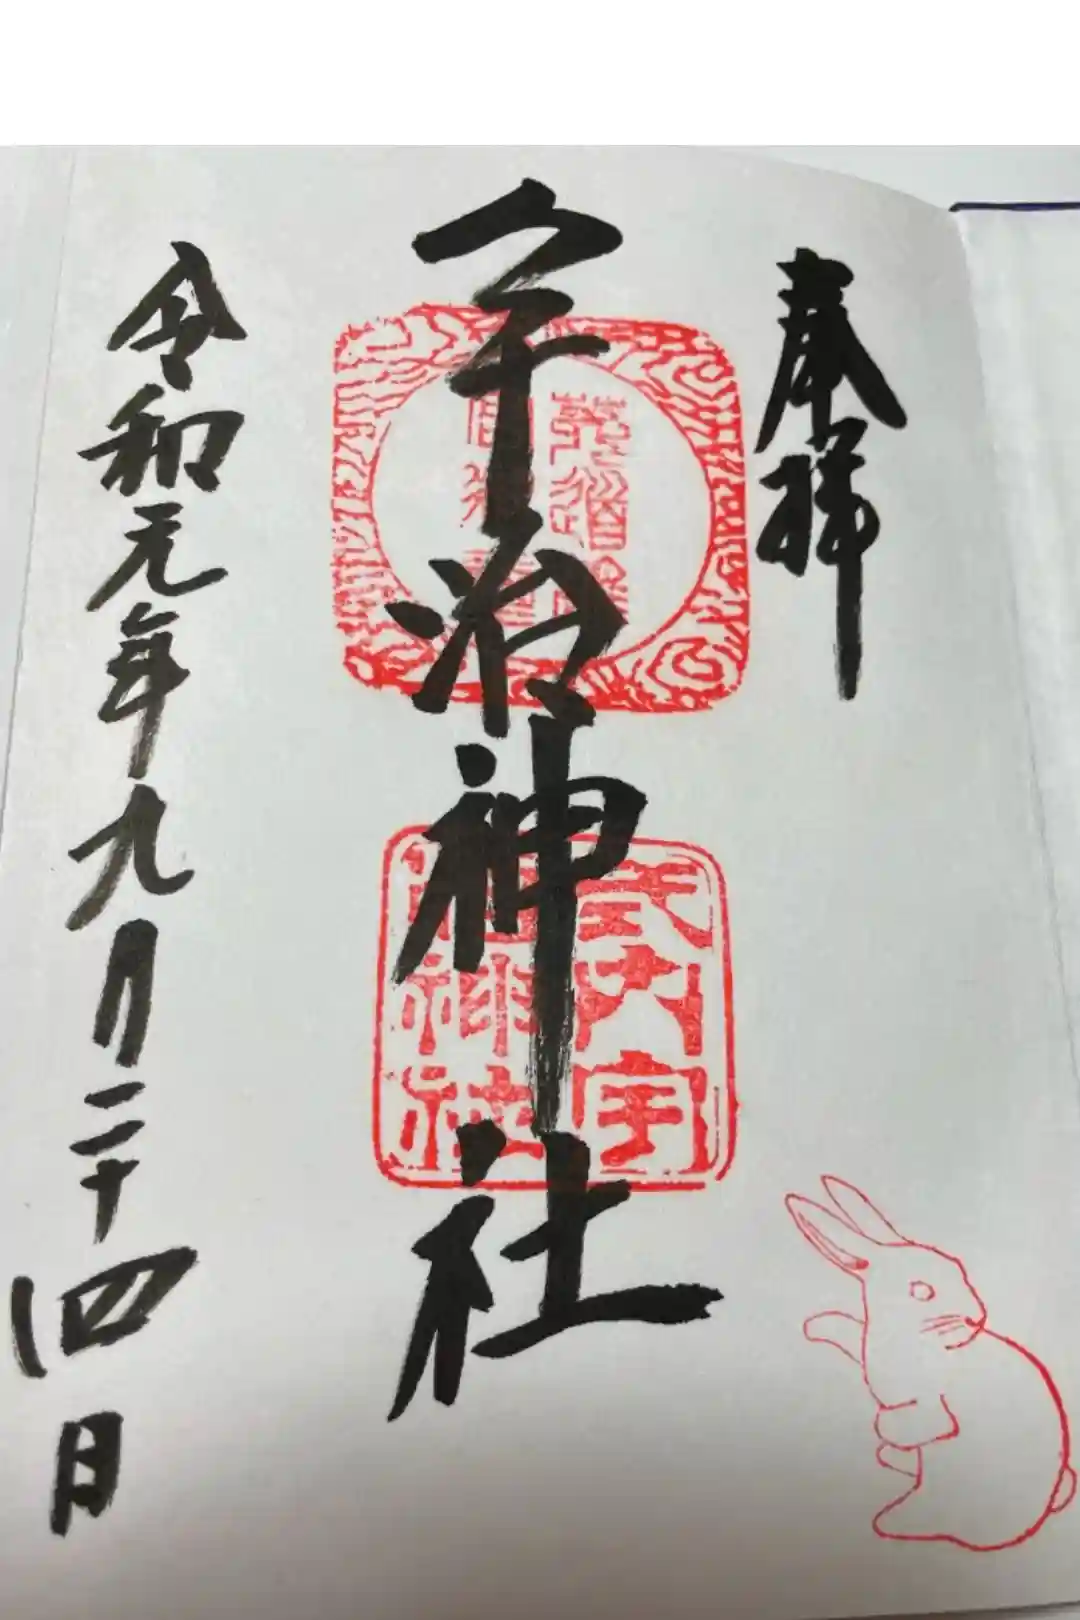 奉拝
宇治神社
令和元年九月二十四日